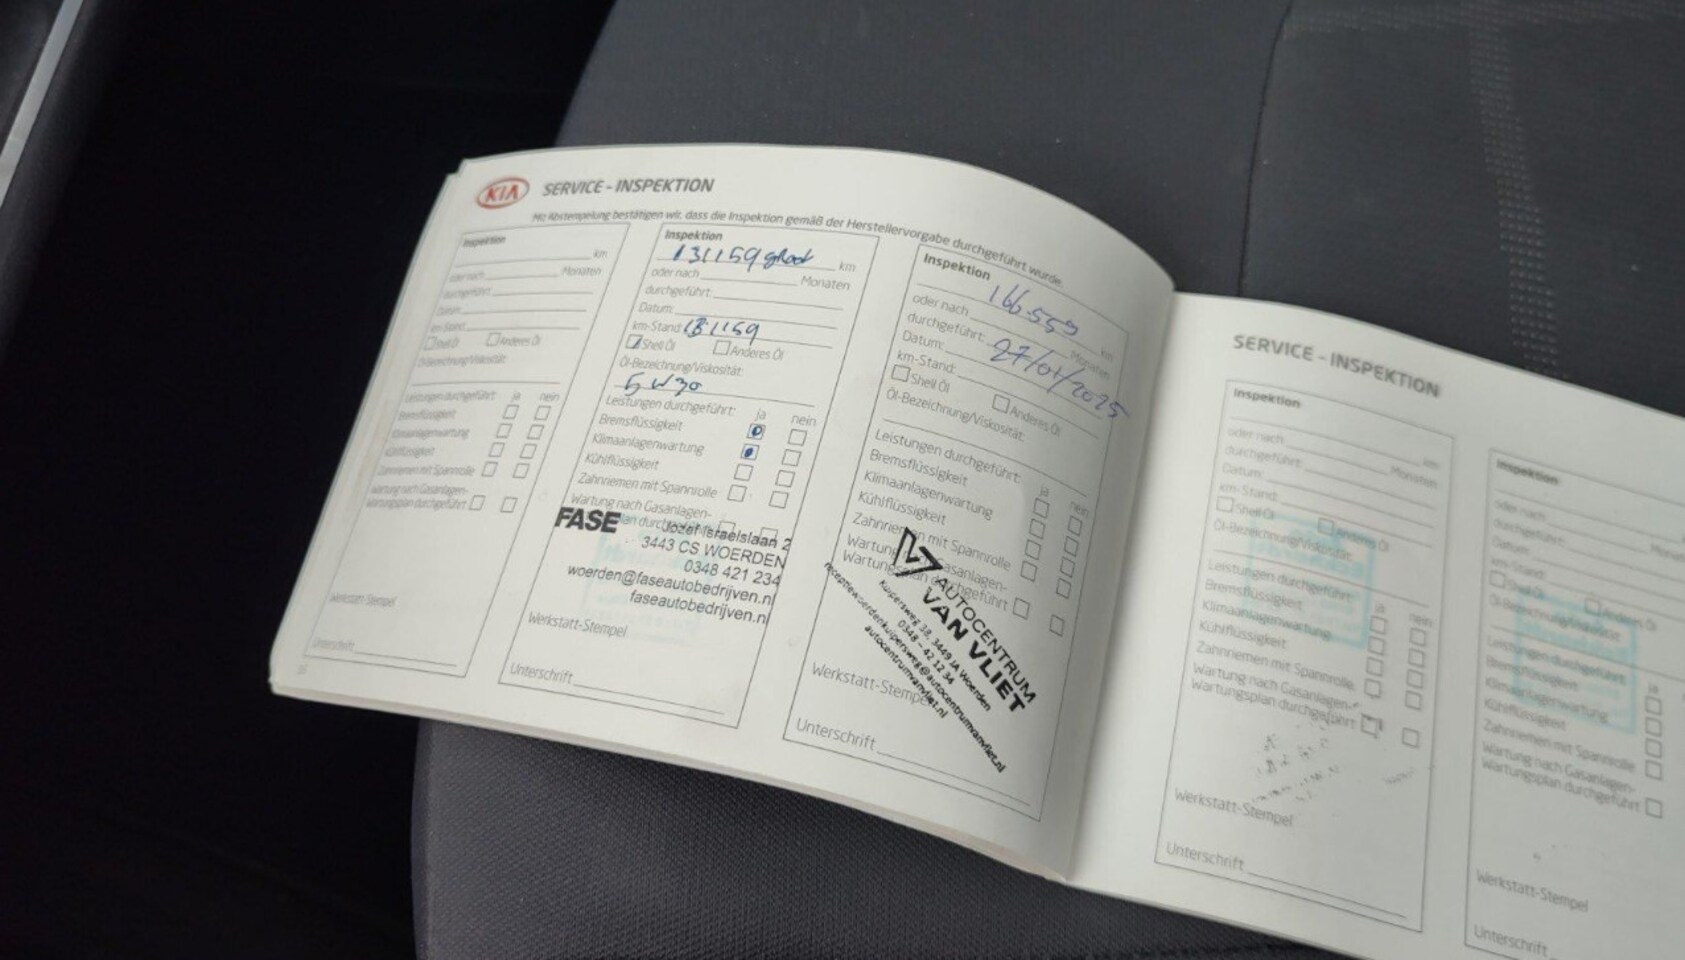 KIA SERVICE - INSPEKTION
Mit Abstempelung bestätigen wir, dass die Inspektion gemäß der Herstellervorgabe durchgeführt wurde.
Inspektion
km
oder nach Monaten
durchgeführt:
Datum:
km-Stand:
Shell Öl Anderes Öl
Öl-Bezeichnung/Viskosität:
Leistungen durchgeführt: ja nein
Bremsflüssigkeit
Klimaanlagenwartung
Kühlflüssigkeit
Zahnriemen mit Spannrolle
Wartung nach Gasanlagen-
Wartungsplan durchgeführt
Werkstatt-Stempel
Unterschrift
Inspektion
131159 groot km
oder nach Monaten
durchgeführt:
Datum:
km-Stand 131159
Shell Öl Anderes Öl
Öl-Bezeichnung/Viskosität:
5W30
Leistungen durchgeführt: ja nein
Bremsflüssigkeit
Klimaanlagenwartung
Kühlflüssigkeit
Zahnriemen mit Spannrolle
Wartung nach Gasanlagen-
plan durchgeführt
FASE Jozef Israelslaan 2
3443 CS WOERDEN
0348 421 234
woerden@faseautobedrijven.nl
faseautobedrijven.nl
Werkstatt-Stempel
Unterschrift
Inspektion
166.559 km
oder nach Monaten
durchgeführt: 27/01/2025
Datum:
km-Stand:
Shell Öl Anderes Öl
Öl-Bezeichnung/Viskosität:
Leistungen durchgeführt: ja nein
Bremsflüssigkeit
Klimaanlagenwartung
Kühlflüssigkeit
Zahnriemen mit Spannrolle
Wartung nach Gasanlagen-
Wartungsplan durchgeführt
AUTOCENTRUM
VAN VLIET
Kuipersweg 38, 3449 JA Woerden
0348 - 42 12 34
receptiewoerdenkuipersweg@autocentrumvanvliet.nl
autocentrumvanvliet.nl
Werkstatt-Stempel
Unterschrift
SERVICE - INSPEKTION
Inspektion
km
oder nach Monaten
durchgeführt:
Datum:
km-Stand:
Shell Öl Anderes Öl
Öl-Bezeichnung/Viskosität:
Leistungen durchgeführt: ja nein
Bremsflüssigkeit
Klimaanlagenwartung
Kühlflüssigkeit
Zahnriemen mit Spannrolle
Wartung nach Gasanlagen-
Wartungsplan durchgeführt
Werkstatt-Stempel
Unterschrift
Inspektion
oder nach
durchgeführt:
Datum:
km-Stand:
Shell Öl Anderes Öl
Öl-Bezeichnung/Viskosität:
Leistungen durchgeführt: ja
Bremsflüssigkeit
Klimaanlagenwartung
Kühlflüssigkeit
Zahnriemen mit Spannrolle
Wartung nach Gasanlagen-
Wartungsplan durchgeführt
Werkstatt-Stempel
Unterschrift